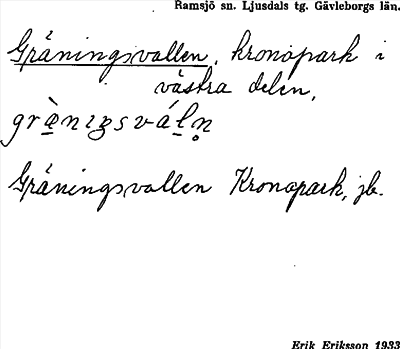 Ramsjö sn. Ljusdals tg. Gävleborgs län.
Gräningsvallen, kronopark i
västra delen,
græ̀nıŋsválṇ
Gräningsvallen Kronopark, jb.
Erik Eriksson 1933